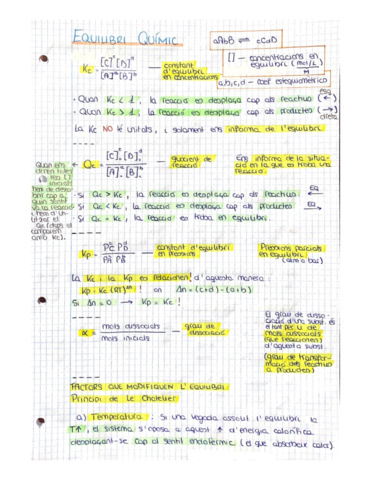 EQUILIBRI QUÍMIC
aAbB ⇌ cCdD
Kc = [C]ᶜ [D]ᵈ / [A]ᵃ [B]ᵇ — constant d'equilibri en concentracions
[ ] — concentracions en equilibri (mol/L) M
a,b,c,d — coef estequiomètric
· Quan Kc < 1, la reacció es desplaça cap als reactius (←) esq
· Quan Kc > 1, la reacció es desplaça cap als productes (→) dreta
La Kc NO té unitats, i solament ens informa de l'equilibri.
Qc = [C]ᶜ [D]ᵈ / [A]ᵃ [B]ᵇ — quocient de reacció
Ens informa de la situació en la que es troba una reacció.
Quan ens
[ ]
inicials
hem de
cap a
quin sentit
va la reacció
Qc
amb Kc).
· Si Qc > Kc, la reacció es desplaça cap als reactius ← EQ
· Si Qc < Kc, la reacció es desplaça cap als productes EQ →
· Si Qc = Kc, la reacció es troba en equilibri.
Kp = PC PD / PA PB — constant d'equilibri en pressions
Pressions parcials en equilibri (atm o bar)
La Kc i la Kp es relacionen d'aquesta manera:
Kp = Kc (RT)^Δn on Δn = (c+d) - (a+b)
Si Δn = 0 → Kp = Kc!
α = mols dissociats / mols inicials — grau de dissociació
El grau de dissociació d'una subst. és
mols dissociats
(que reaccionen)
d'aquesta subst.
(grau de transformació dels reactius a productes)
FACTORS QUE MODIFIQUEN L'EQUILIBRI
Principi de Le Chatelier
a) Temperatura: Si una vegada assolit l'equilibri la
T↑, el sistema s'oposa a aquest ↑ d'energia calorífica
desplaçant-se cap al sentit endotèrmic (el que absorbeix calor).